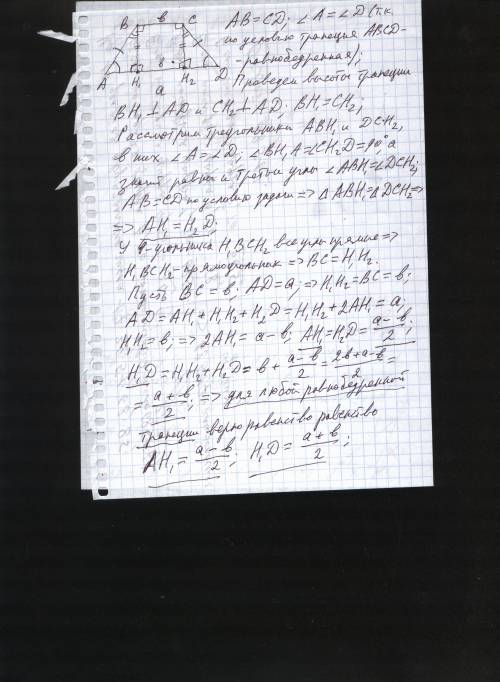 B в C
A H₁ в H₂ D
a
AB=CD; ∠A=∠D (т.к.
по условию трапеция ABCD-
-равнобедренная);
Проведем высоты трапеции
BH₁⊥AD и CH₂⊥AD; BH₁=CH₂;
Рассмотрим треугольники ABH₁ и DCH₂,
в них ∠A=∠D; ∠BH₁A=∠CH₂D=90° а
значит равны и третьи углы ∠ABH₁=∠DCH₂;
AB=CD по условию задачи => △ABH₁=△DCH₂=>
=> AH₁=H₂D;
У 4-угольника H₁BCH₂ все углы прямые =>
H₁BCH₂-прямоугольник => BC=H₁H₂.
Пусть BC=в; AD=a; => H₁H₂=BC=в;
AD=AH₁+H₁H₂+H₂D=H₁H₂+2AH₁=a;
H₁H₂=в; => 2AH₁=a-в; AH₁=H₂D=(a-в)/2;
H₁D=H₁H₂+H₂D=в+(a-в)/2=(2в+a-в)/2=
=(a+в)/2; => для любой равнобедренной
трапеции верно равенство равенство
AH₁=(a-в)/2; H₁D=(a+в)/2;